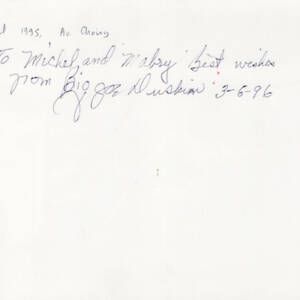 1995, Av. Cherny
To Michel, and "Mabry" Best wishes
from Big Joe Duskin 3-6-96